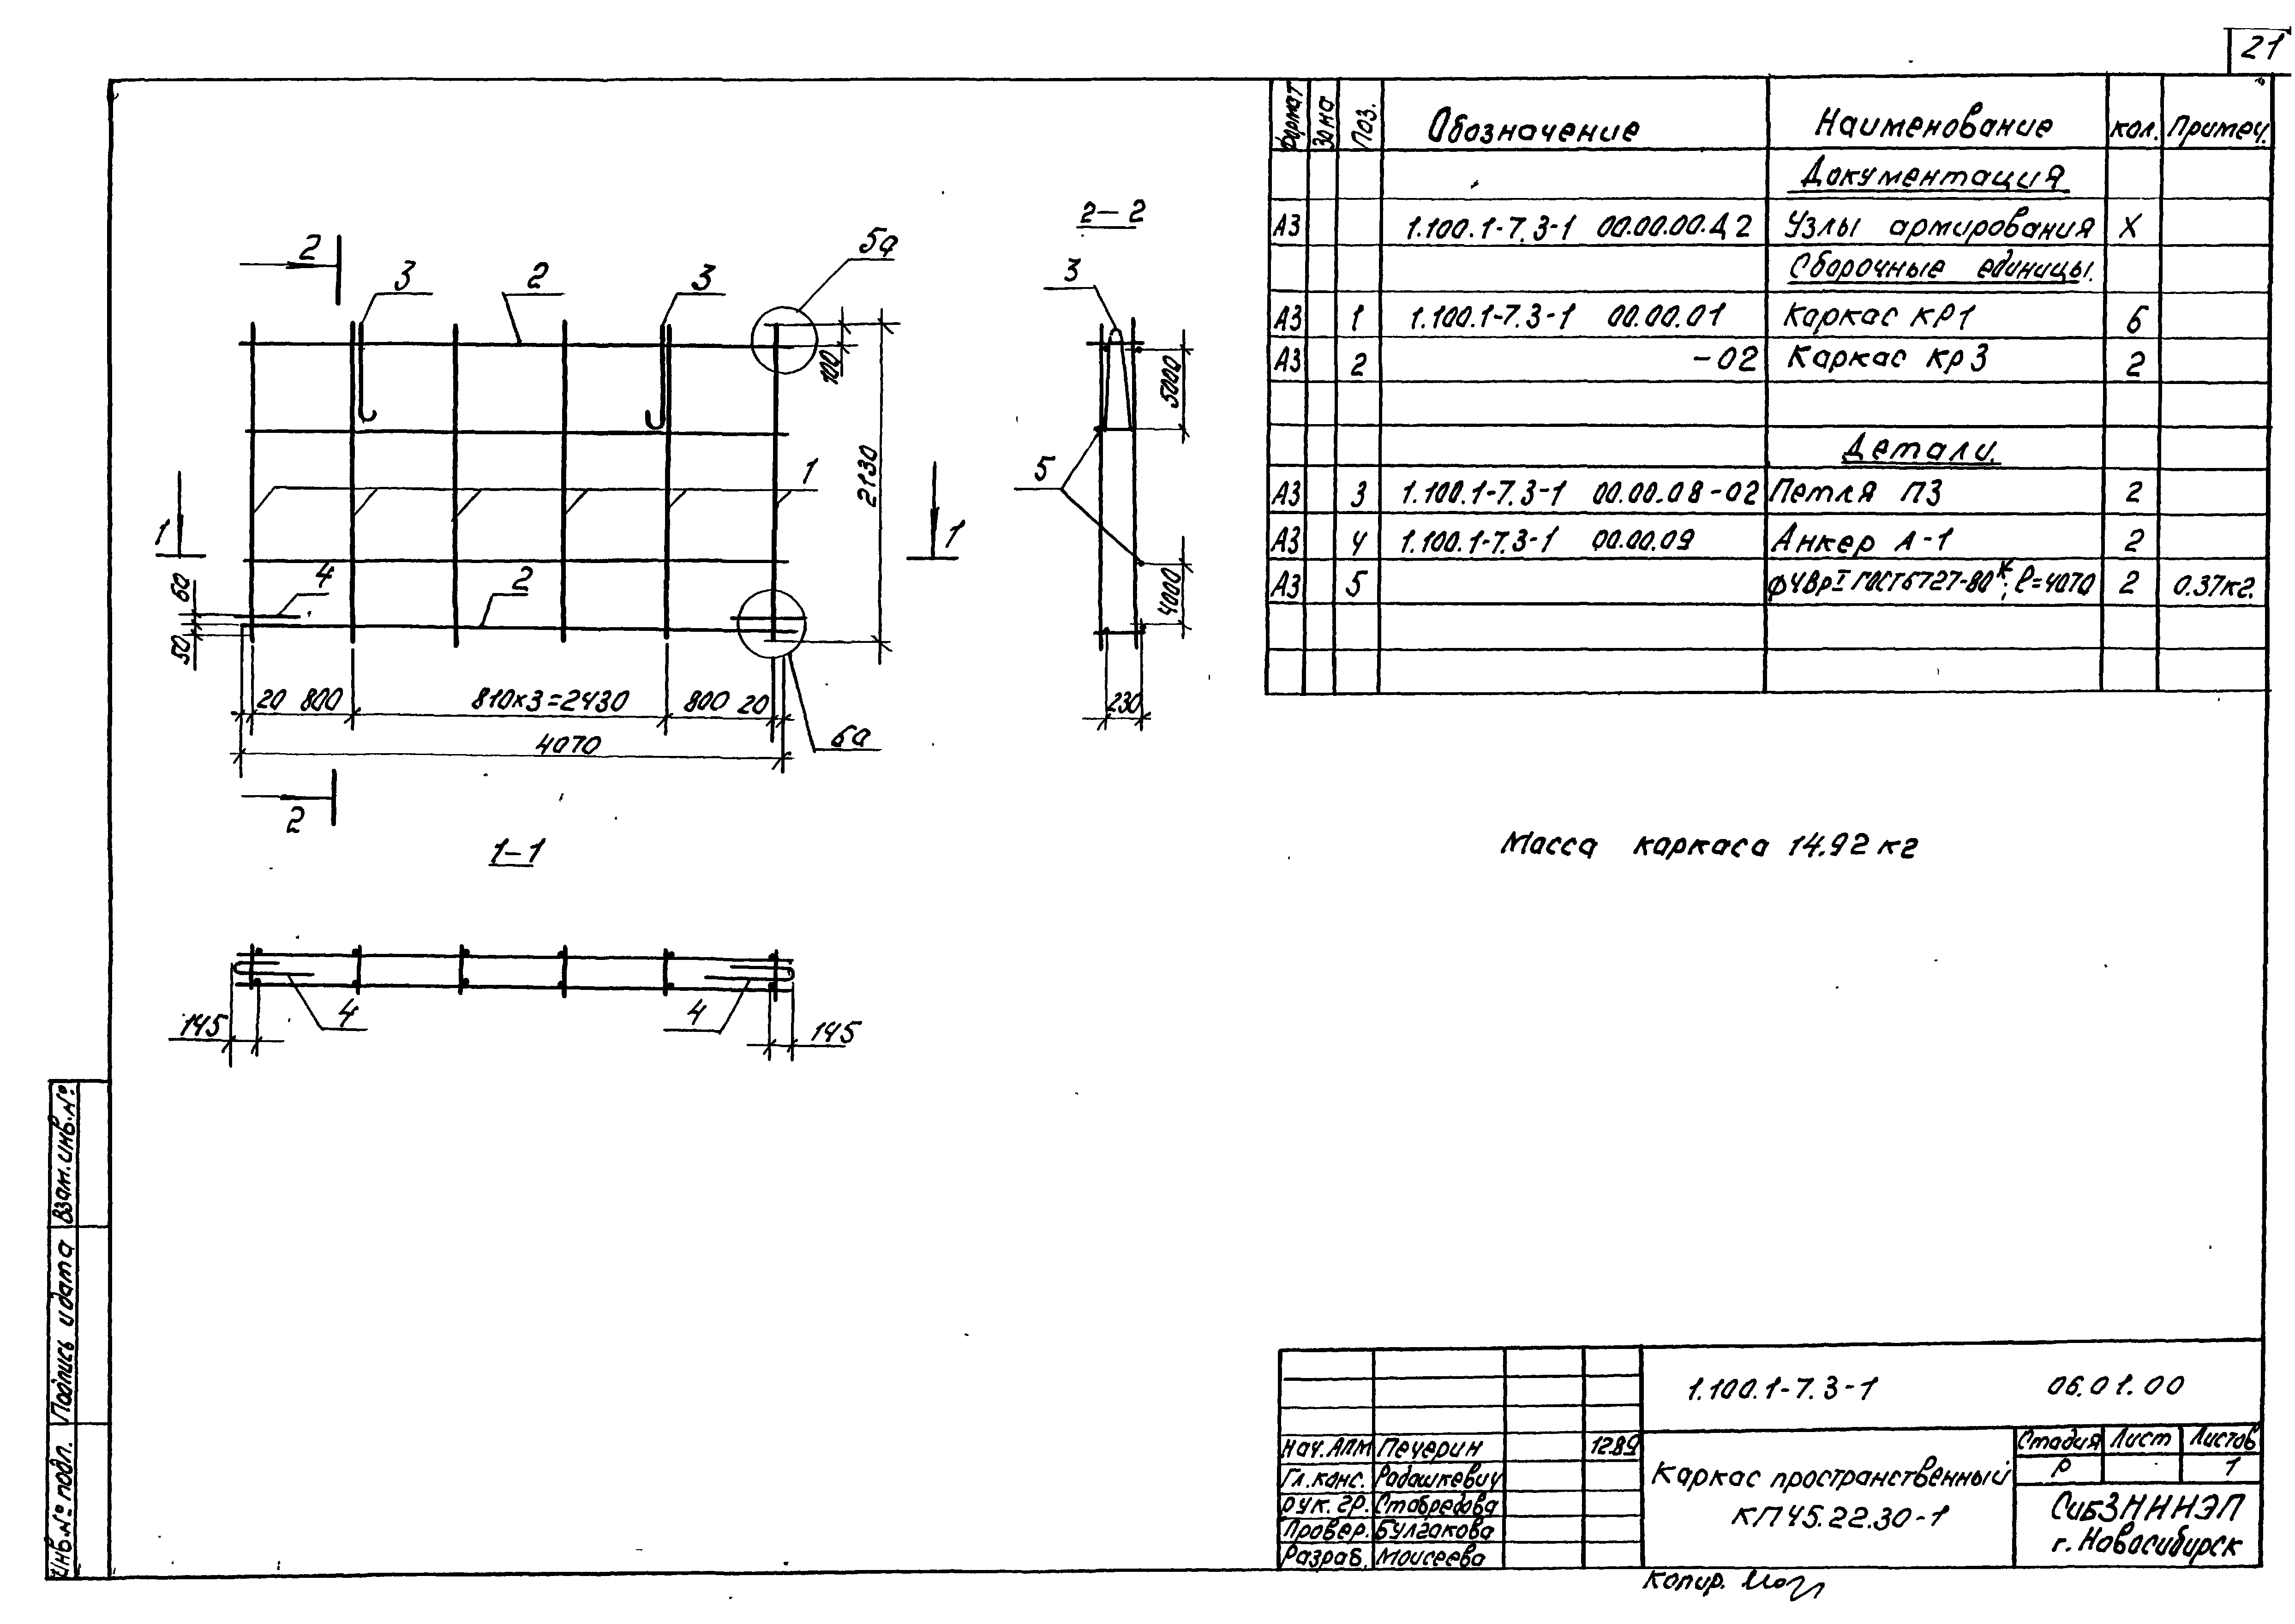 21
Формат Зона Поз. Обозначение Наименование Кол. Примеч.
Документация
А3 1.100.1-7.3-1 00.00.00.Д2 Узлы армирования X
Сборочные единицы.
А3 1 1.100.1-7.3-1 00.00.01 Каркас КР1 6
А3 2 -02 Каркас кр3 2
Детали.
А3 3 1.100.1-7.3-1 00.00.08-02 Петля П3 2
А3 4 1.100.1-7.3-1 00.00.09 Анкер А-1 2
А3 5 ф4ВрI ГОСТ6727-80*; ℓ=4070 2 0.37кг.
2
3
2
3
5а
100
2130
1
1
1
4
2
60
50
20 800 810х3=2430 800 20
4070
6а
2
2-2
3
5
5000
4000
230
1-1
4
4
145
145
Масса каркаса 14.92 кг
1.100.1-7.3-1 06.01.00
Нач.АПМ Печерин 12.89
Гл.конс. Радашкевич
Рук. гр. Стабредова
Провер. Булгакова
Разраб. Моисеева
Каркас пространственный
КП45.22.30-1
Стадия Лист Листов
Р 1
СибЗНИИЭП
г. Новосибирск
Копир.
Инв.№ подл. Подпись и дата Взам.инв.№